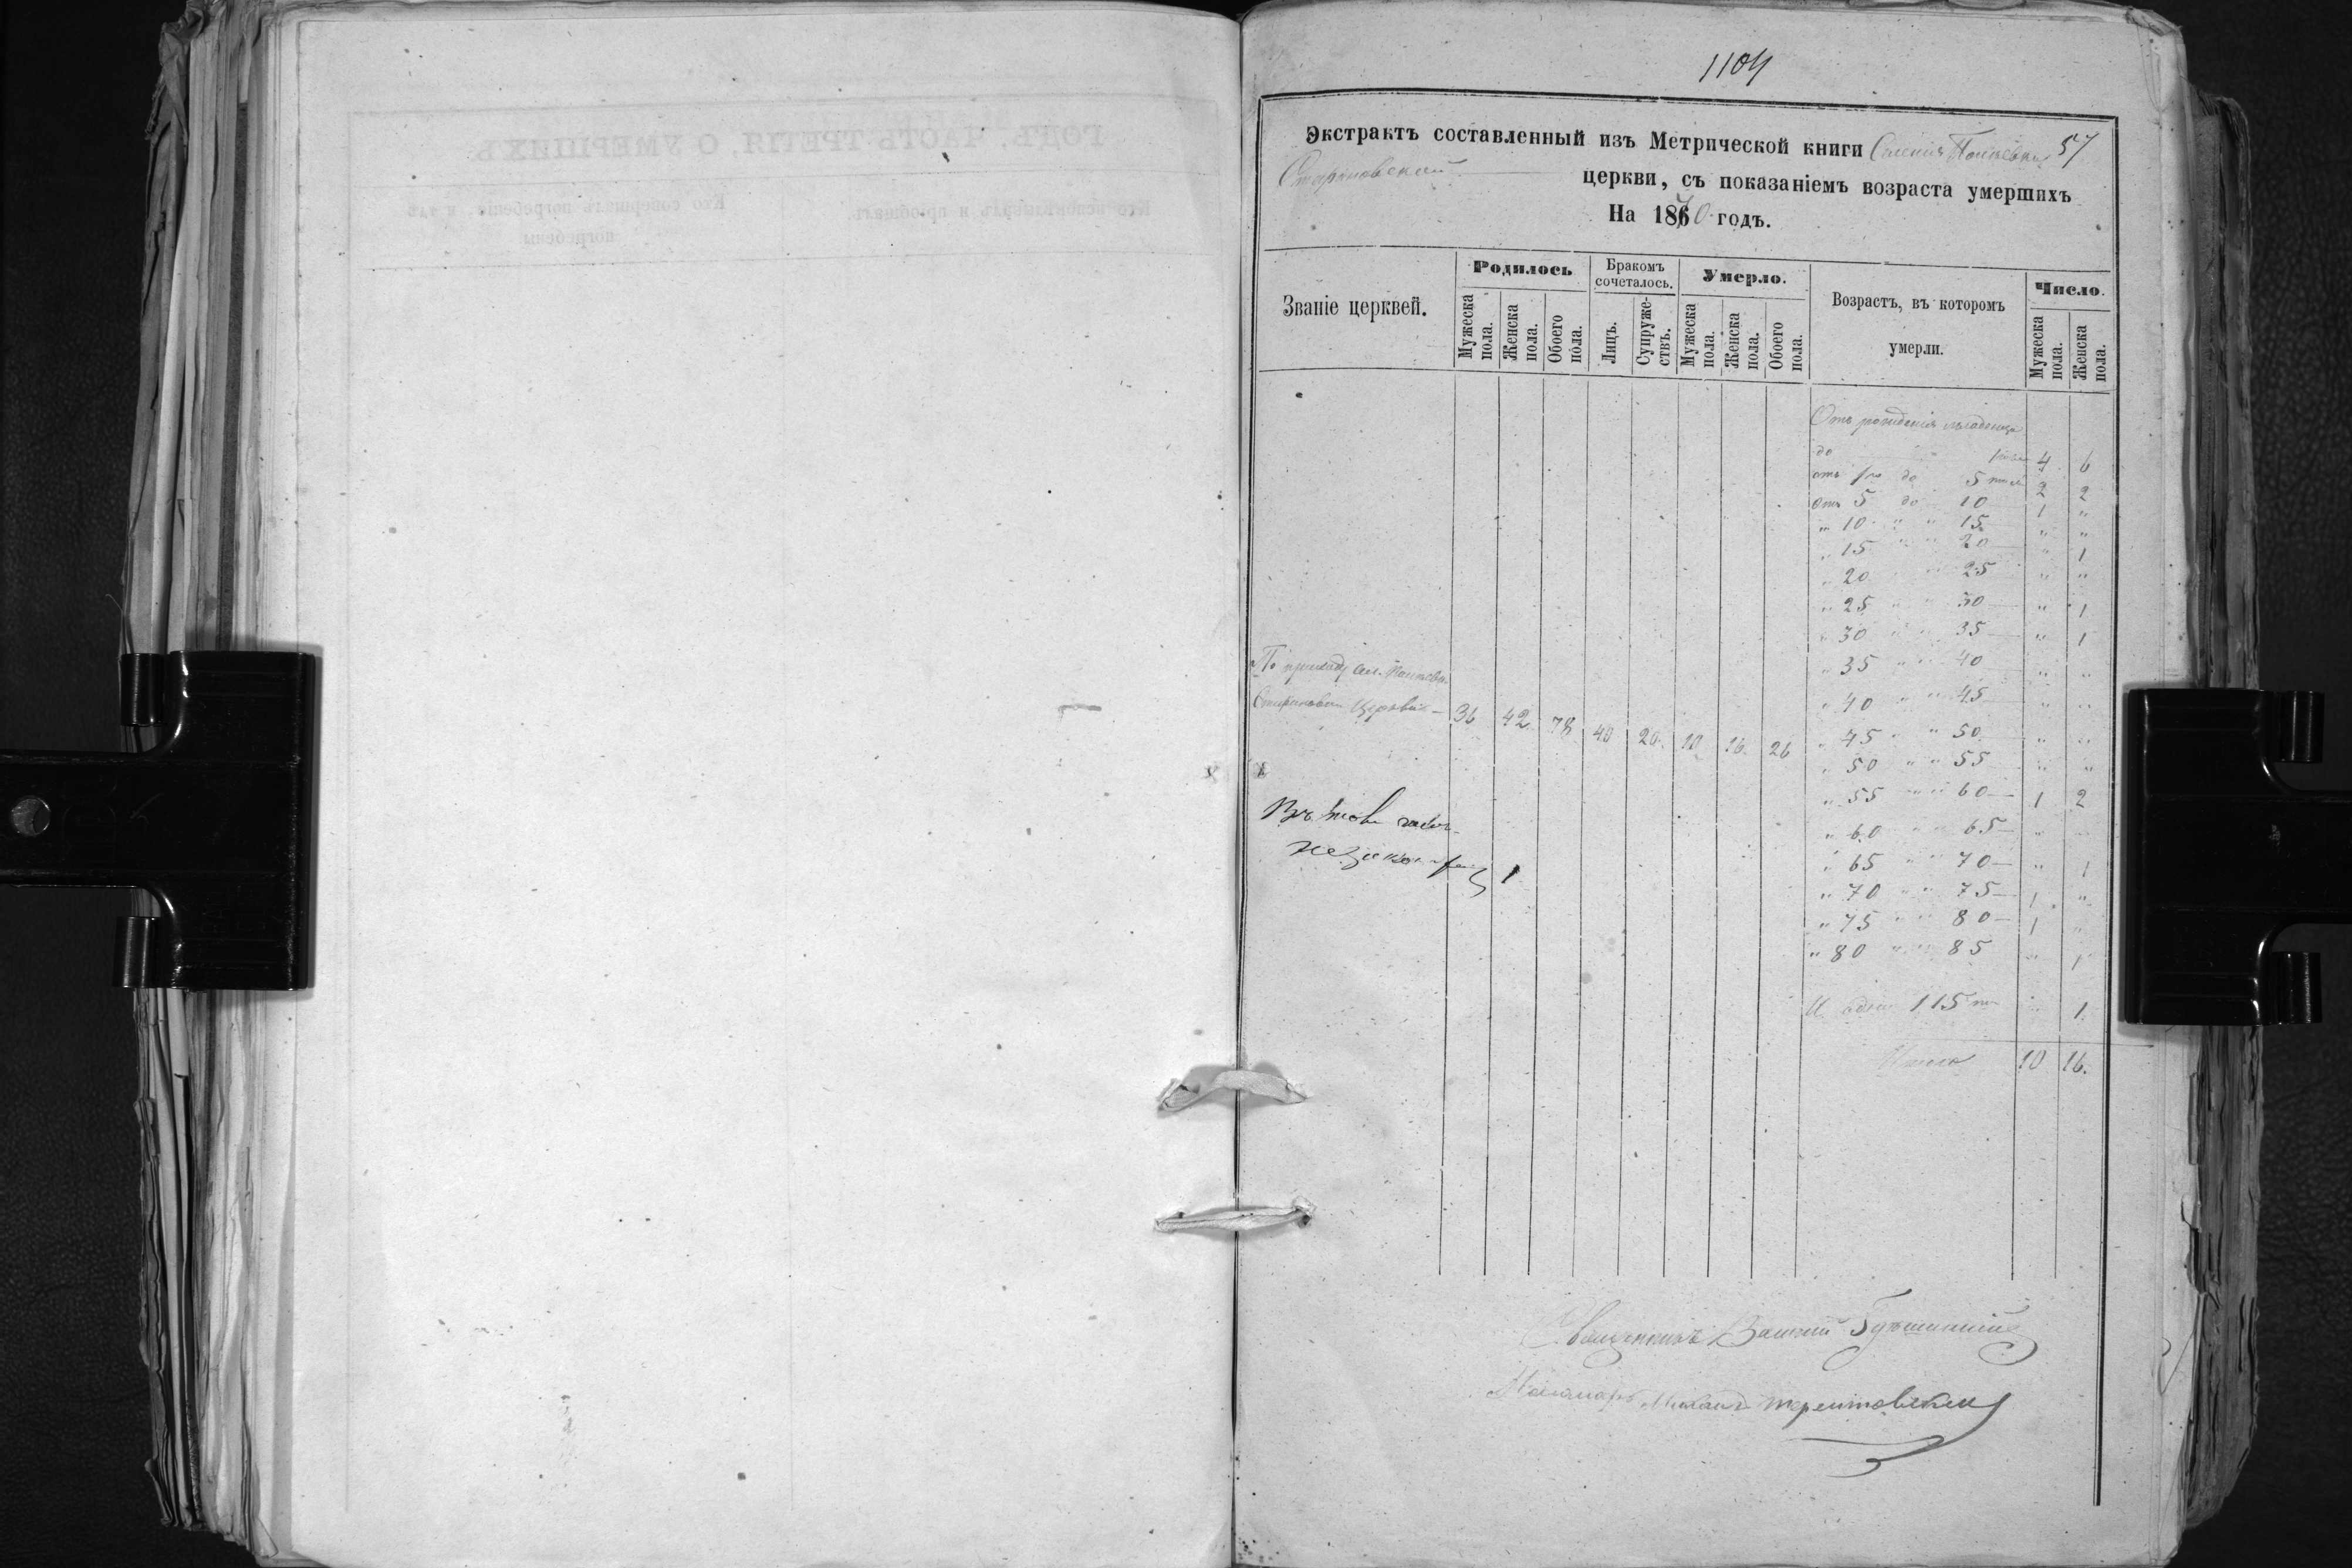 1104
Экстрактъ составленный изъ Метрической книги 57
церкви, съ показаніемъ возраста умершихъ
На 1870 годъ.
Званіе церквей.
Родилось
Мужеска пола.
Женска пола.
Обоего пола.
Бракомъ сочеталось.
Лицъ.
Супружествъ.
Умерло.
Мужеска пола.
Женска пола.
Обоего пола.
Возрастъ, въ которомъ умерли.
Число.
Мужеска пола.
Женска пола.
Отъ рожденія младенца
до 4 6
отъ 1го до 5 2 2
отъ 5 до 10 1 "
" 10 " " 15 " "
" 15 " " 20 " 1
" 20 " " 25 " "
" 25 " " 30 " 1
" 30 " " 35 " 1
" 35 " " 40 " "
" 40 " " 45 " "
" 45 " " 50 " "
" 50 " " 55 " "
" 55 " " 60 1 2
" 60 " " 65 " "
" 65 " " 70 " 1
" 70 " " 75 1 "
" 75 " " 80 1 "
" 80 " " 85 " 1
115 " 1
Итого 10 16.
По приходу
церкви 36 42 78 40 20 10 16 26
1
Священникъ
Пономарь Михаилъ
ГОДЪ, ЧАСТЬ ТРЕТІЯ, О УМЕРШИХЪ
Кто исповѣдывалъ и пріобщалъ.
Кто совершалъ погребеніе, и гдѣ погребены